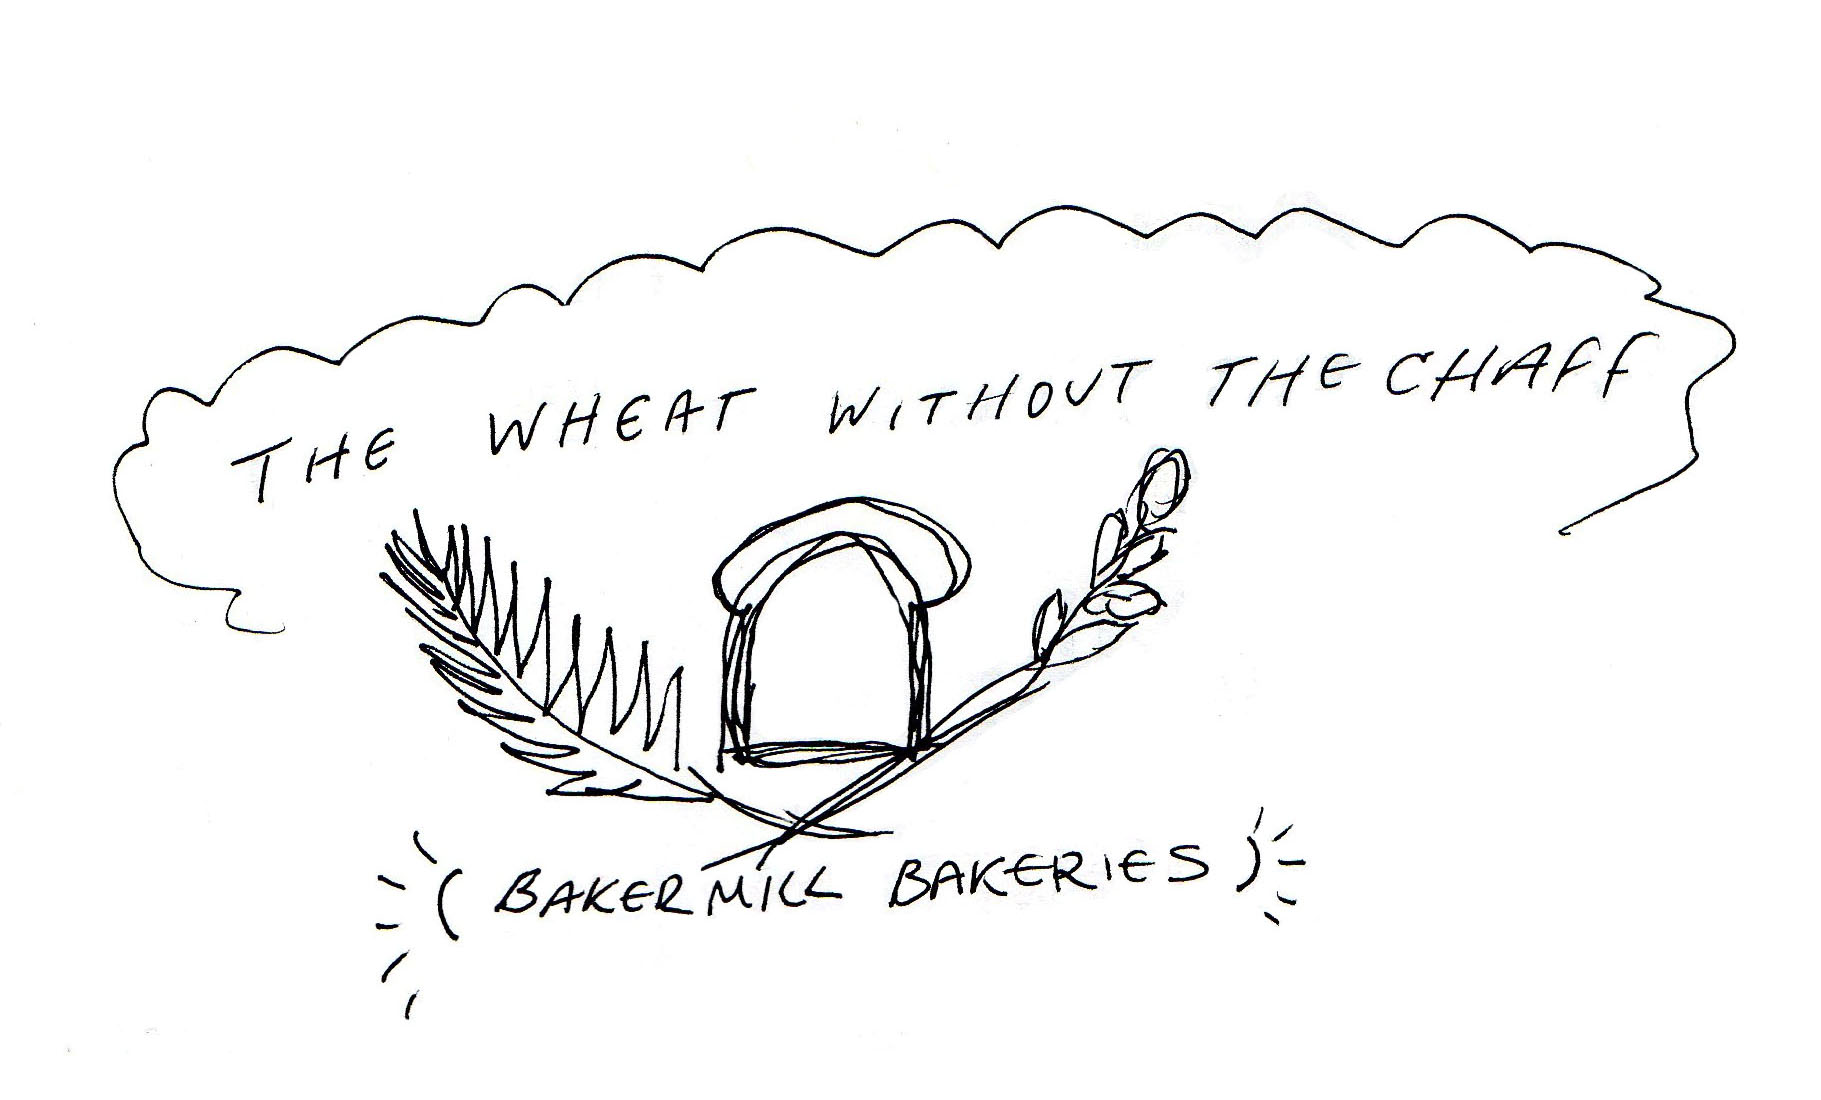 THE WHEAT WITHOUT THE CHAFF
(BAKERMILL BAKERIES)